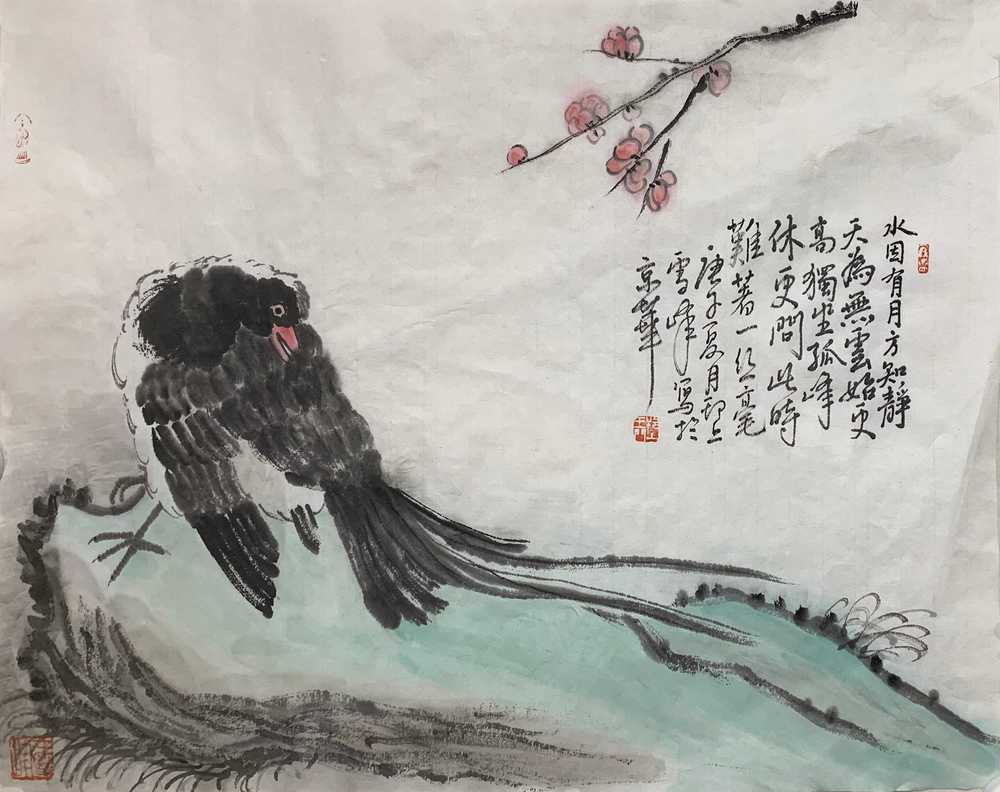 水因有月方知靜
天為無雲始更
高獨坐孤峰
休更問此時
難著一絲毫
庚子夏月郭上
雪峰寫於
京華